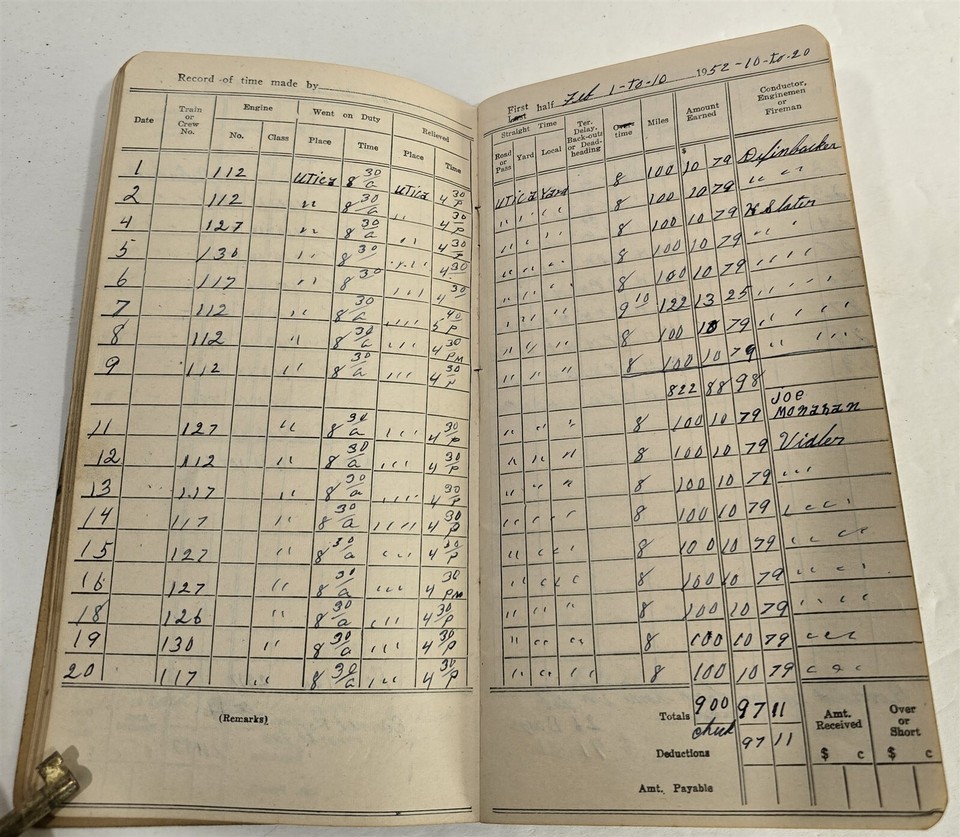 Record of time made by
First half Feb 1-to-10 1952-10-to-20
Last
Date Train or Crew No. Engine No. Class Went on Duty Place Time Relieved Place Time
Straight Time Road or Pass Yard Local Ter. Delay, Back-outs or Dead-heading Over time Miles Amount Earned $ Conductor, Enginemen or Fireman
1 112 Utica 8 30/a Utica 4 30/P Utica Yard 8 100 10 79
2 112 " 8 30/a " 4 30/P " " " " 8 100 10 79 " " "
4 127 " 8 30/a " 4 30/P " " " " 8 100 10 79 H Slater
5 130 " 8 30 " " " 4 30 " " " " 8 100 10 79 " " "
6 117 " 8 30 " " " 4 30 " " " " 8 100 10 79 " " " "
7 112 " 8 30/a " " " 5 40/P " " " " 9 10 122 13 25 " " " "
8 112 " 8 30/a " " " 4 30/PM " " " " 8 100 10 79 " " " "
9 112 " 8 30/a " " " 4 30/P " " " " 8 100 10 79 " " " "
822 88 98
11 127 " 8 30/a " " " 4 30/P " " " 8 100 10 79 Joe Monahan
12 112 " 8 30/a " " " 4 30/P " " " 8 100 10 79 Vidler
13 117 " 8 30/a " " " " 4 30/P " " " 8 100 10 79 " " "
14 117 " 8 30/a " " " " 4 30/P " " " " 8 100 10 79 " " " "
15 127 " 8 30/a " " " 4 30/P " " " " 8 100 10 79 " " " "
16 127 " 8 30/a " " " 4 30/PM " " " " 8 100 10 79 " " " "
18 126 " 8 30/a " " " 4 30/P " " " 8 100 10 79 " " " "
19 130 " 8 30/a " " " 4 30/P " " " " 8 100 10 79 " " "
20 117 " 8 30/a " " " 4 30/P " " " " 8 100 10 79 " " "
(Remarks)
Totals 900 97 11 Amt. Received $ c Over or Short $ c
Deductions 97 11
Amt. Payable